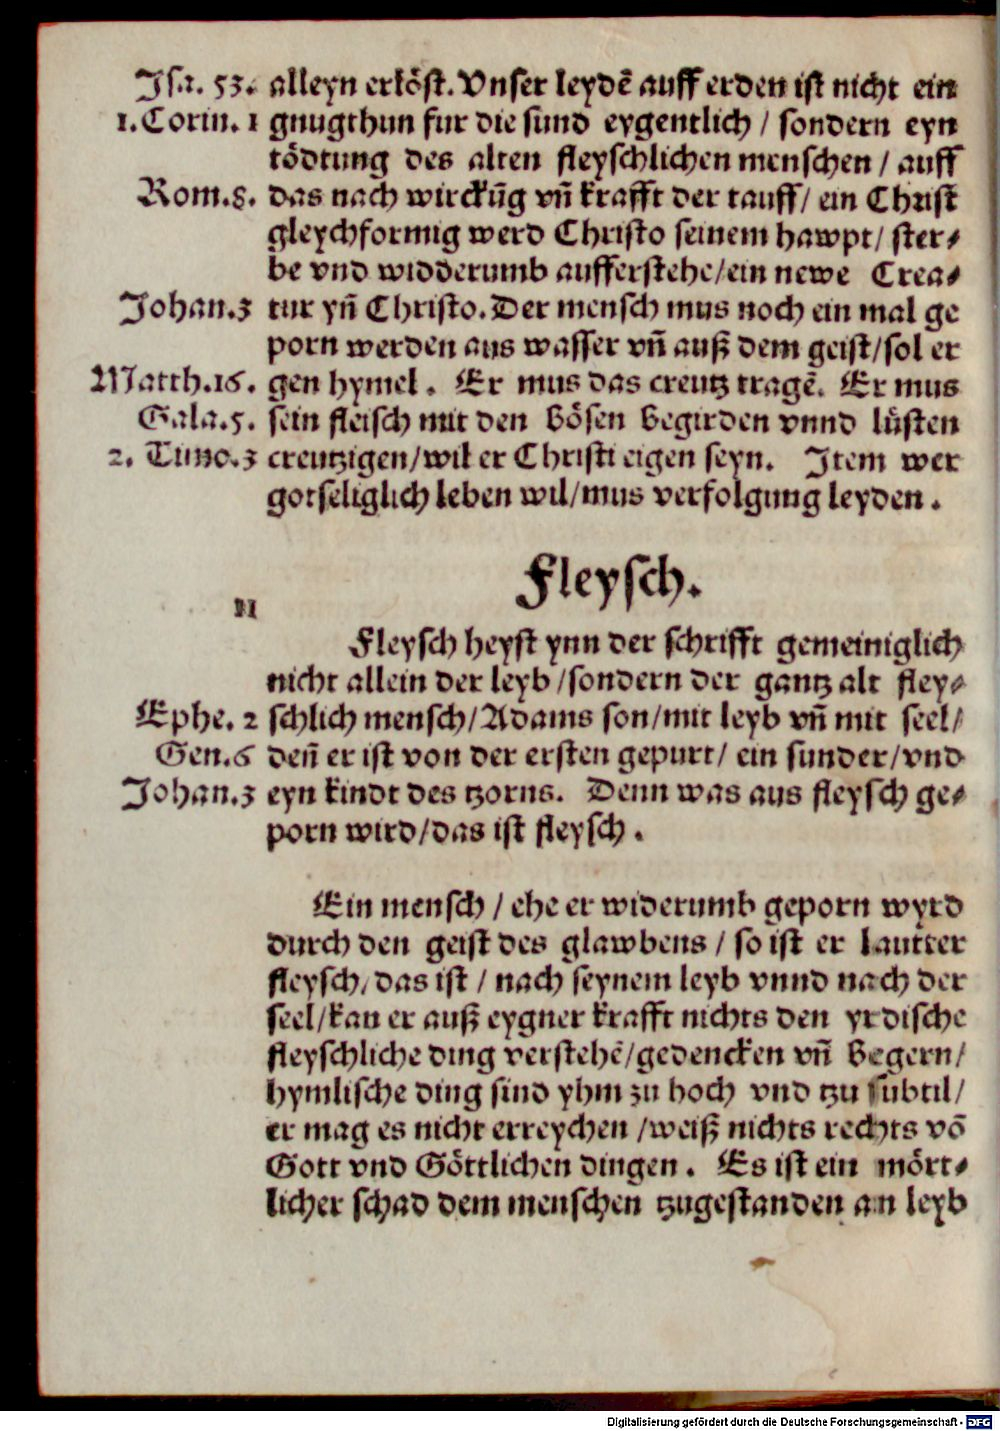 Jsa. 53. alleyn erlöst. Vnser leydẽ auff erden ist nicht ein
1. Corin. 1 gnugthun fur die sund eygentlich / sondern eyn
tödtung des alten fleyschlichen menschen / auff
Rom. 8. das nach wirckũg vñ krafft der tauff / ein Christ
gleychformig werd Christo seinem hawpt / ster⸗
be vnd widderumb aufferstehe / ein newe Crea⸗
Johan. 3 tur yñ Christo. Der mensch mus noch ein mal ge
porn werden aus wasser vñ auß dem geist / sol er
Matth. 16. gen hymel . Er mus das creutz tragẽ. Er mus
Gala. 5. sein fleisch mit den bösen begirden vnnd lüsten
2. Timo. 3 creutzigen / wil er Christi eigen seyn. Jtem wer
gotseliglich leben wil / mus verfolgung leyden .
Fleysch.
Fleysch heyst ynn der schrifft gemeiniglich
nicht allein der leyb / sondern der gantz alt fley⸗
Ephe. 2 schlich mensch / Adams son / mit leyb vñ mit seel /
Gen. 6 deñ er ist von der ersten gepurt / ein sunder / vnd
Johan. 3 eyn kindt des tzorns. Denn was aus fleysch ge⸗
porn wird / das ist fleysch .
Ein mensch / ehe er widerumb geporn wyrd
durch den geist des glawbens / so ist er lautter
fleysch, das ist / nach seynem leyb vnnd nach der
seel / kan er auß eygner krafft nichts den yrdische
fleyschliche ding verstehẽ / gedencken vñ begern /
hymlische ding sind yhm zu hoch vnd tzu subtil /
er mag es nicht erreychen / weiß nichts rechts võ
Gott vnd Göttlichen dingen . Es ist ein mört⸗
licher schad dem menschen tzugestanden an leyb
Digitalisierung gefördert durch die Deutsche Forschungsgemeinschaft - DFG